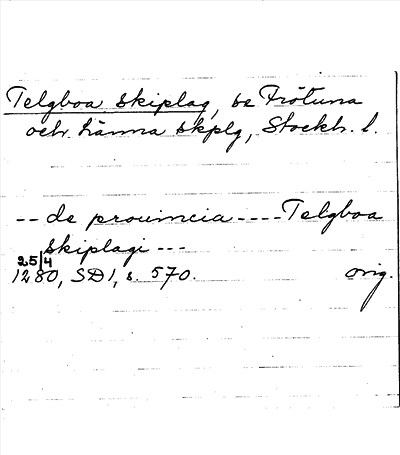 Telgboa skiplag, se Frötuna
och Länna skplg, Stockh. l.
-- de prouincia ---- Telgboa
skiplagi ---
25/4
1280, SD1, s. 570. orig.